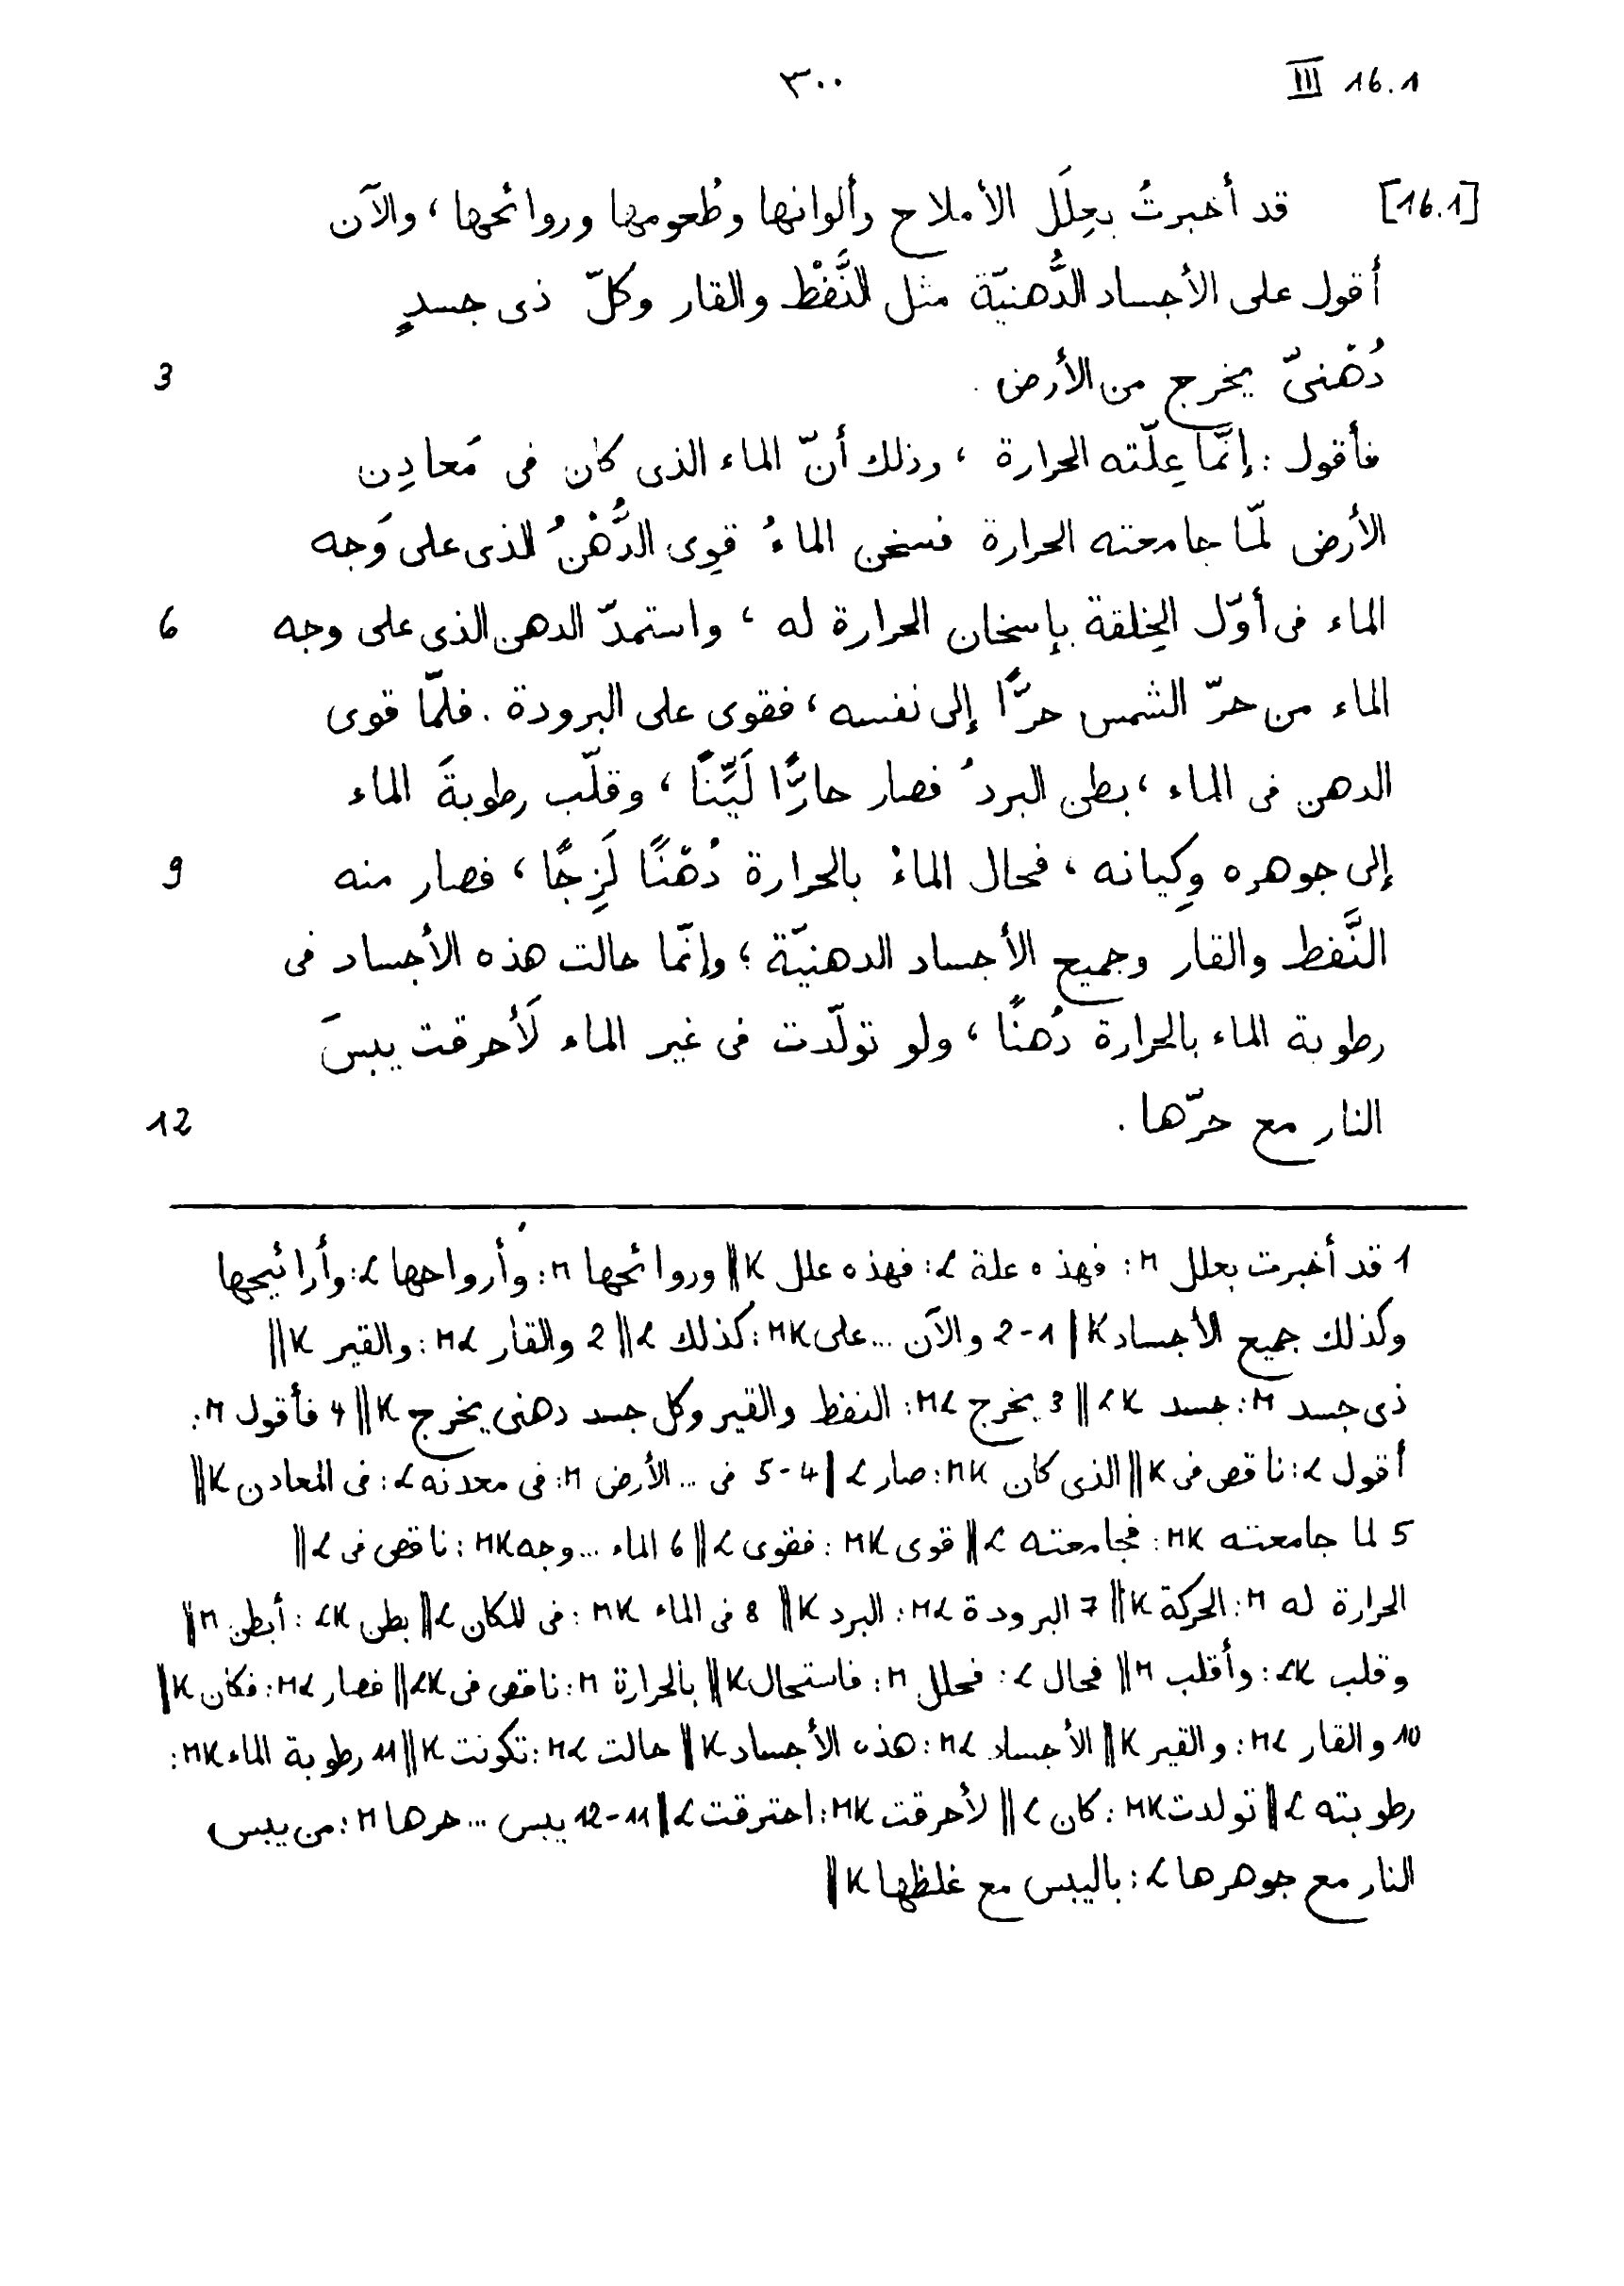 III 16.1
٣٠٠
[16.1] قد أخبرتُ بعِلَل الأملاح وألوانها وطُعومها وروائحها ، والآن
أقول على الأجساد الدُّهنيّة مثل النَّفْط والقار وكلّ ذى جسدٍ
دُهْنىّ يخرج من الأرض .
3
فأقول : إنّما عِلّته الحرارة ، وذلك أنّ الماء الذى كان فى مَعادِن
الأرض لمّا جامعته الحرارة فسخن الماءُ قوِى الدُّهْنُ الذى على وَجه
الماء فى أوّل الخِلقة بإسخان الحرارة له ، واستمدّ الدهن الذى على وجه
6
الماء من حرّ الشمس حرًّا إلى نفسه ، فقوى على البرودة . فلمّا قوى
الدهن فى الماء ، بطن البردُ فصار حارًّا لَيِّنًا ، وقلّب رطوبةَ الماء
إلى جوهره وكِيانه ، فحال الماءُ بالحرارة دُهْنًا لَزِجًا ، فصار منه
9
النَّفط والقار وجميع الأجساد الدهنيّة ؛ وإنّما حالت هذه الأجساد فى
رطوبة الماء بالحرارة دُهنًا ، ولو تولّدت فى غير الماء لَأحرقت يبسَ
النار مع حرّها .
12
1 قد أخبرت بعلل M : فهذه علة L : فهذه علل K || وروائحها M : وأرواحها L : وأرائيحها
وكذلك جميع الأجساد K | 1-2 والآن ... على MK : كذلك L || 2 والقار ML : والقير K ||
ذى جسد M : جسد LK || 3 يخرج ML : النفط والقير وكل جسد دهنى يخرج K || 4 فأقول M :
أقول L : ناقص فى K || الذى كان MK : صار L | 4-5 فى ... الأرض M : فى معدنه L : فى المعادن K ||
5 لما جامعته MK : فجامعته L || قوى MK : فقوى L || 6 الماء ... وجه MK : ناقص فى L ||
الحرارة له M : الحركة K || 7 البرودة ML : البرد K || 8 فى الماء MK : فى المكان L || بطن LK : أبطن M ||
وقلب LK : وأقلب M || فحال L : فحلل M : فاستحال K || بالحرارة M : ناقص فى LK || فصار ML : فكان K |
10 والقار ML : والقير K || الأجساد ML : هذه الأجساد K || حالت ML : تكونت K || 11 رطوبة الماء MK :
رطوبته L || تولدت MK : كان L || لأحرقت MK : احترقت L | 11-12 يبس ... حرها M : من يبس
النار مع جوهرها L : باليبس مع غلظها K ||